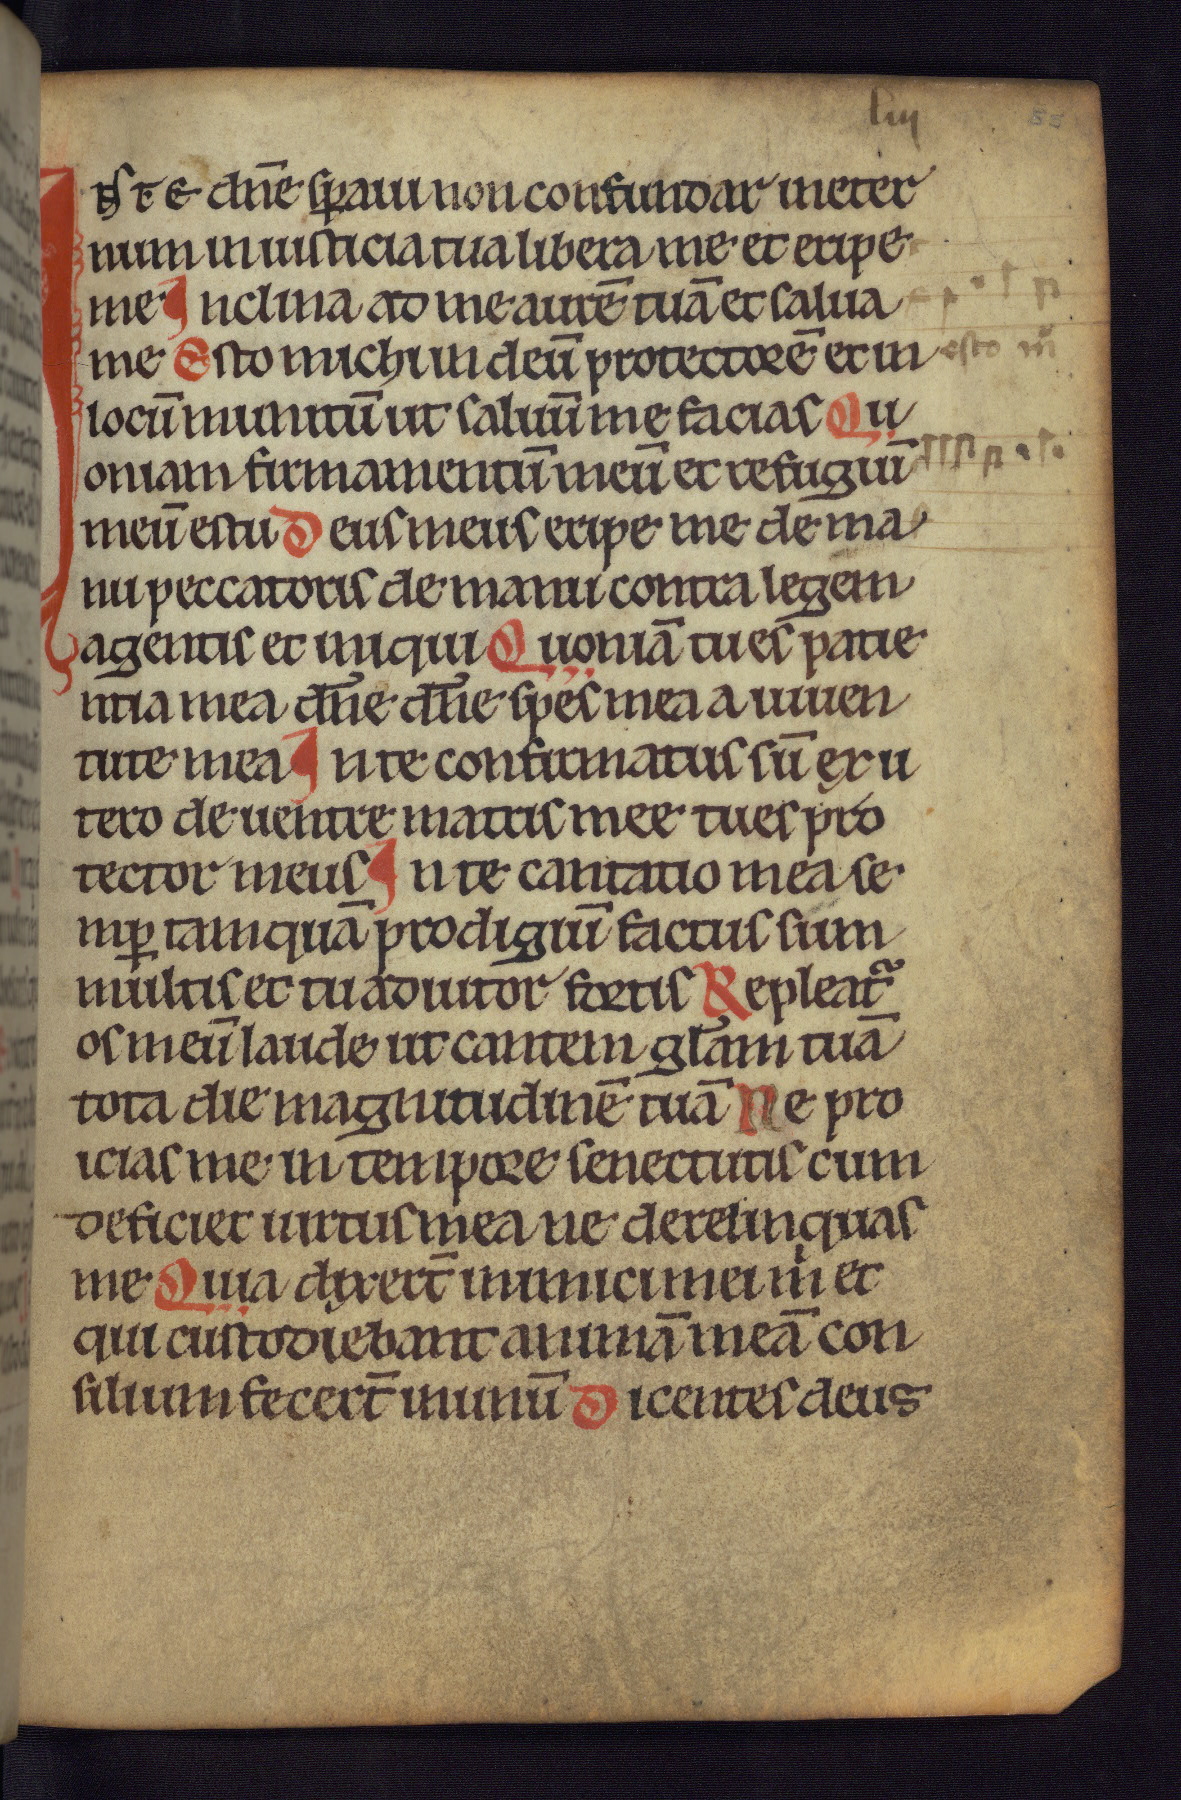 liiij
55
IN TE dn̄e sꝑaui non confundar in eter
num in iusticia tua libera me et eripe
me Inclina ad me aurē tuā et salua
me Esto michi in deū protectorē et in
esto m̄
locū munitū ut saluū me facias Qu
oniam firmamentū meū et refugiū
meū es tu Deus meus eripe me de ma
nu peccatoris de manu contra legem
agentis et iniqui Quoniā tu es patie
ntia mea dn̄e dn̄e spes mea a iuuen
tute mea In te confirmatus sū ex u
tero de uentre matris mee tu es pro
tector meus In te cantatio mea se
mꝑ tamquā prodigiū factus sum
multis et tu adiutor fortis Repleat᷑
os meū laude ut cantem gl̄am tuā
tota die magnitudinē tuā Ne pro
icias me in tempore senectutis cum
deficiet uirtus mea ne derelinquas
me Quia dixert̄ inimici mei m̄ et
qui custodiebant animā meā con
silium fecert̄ in unū Dicentes deus